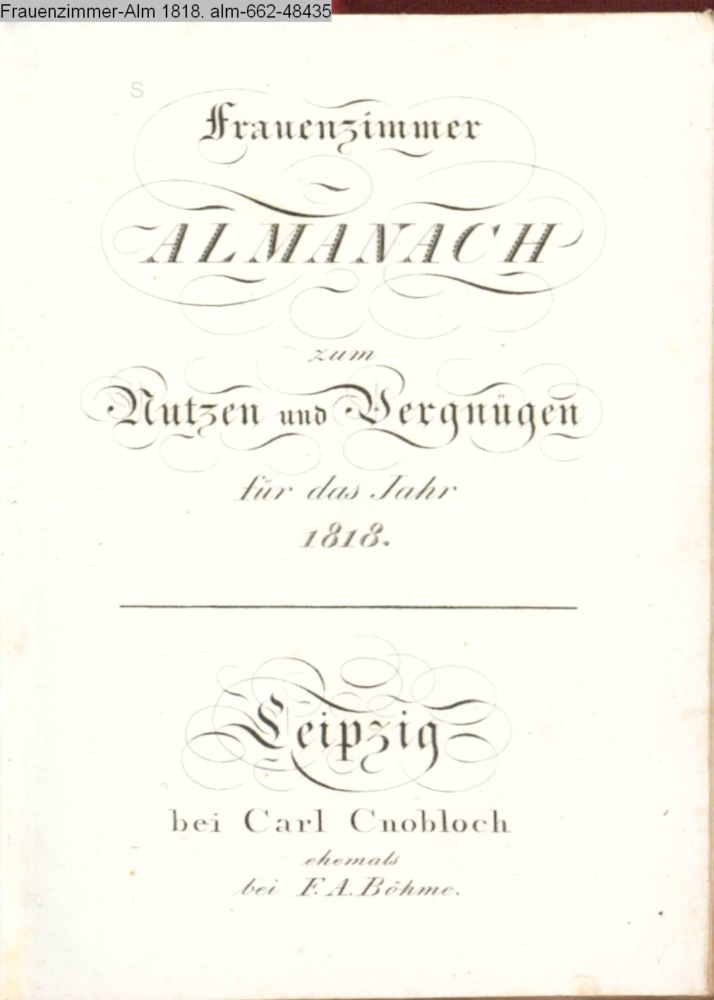 Frauenzimmer-Alm 1818. alm-662-48435
S
Frauenzimmer
ALMANACH
zum
Nutzen und Vergnügen
für das Jahr
1818.
Leipzig
bei Carl Cnobloch
ehemals
bei F. A. Böhme.